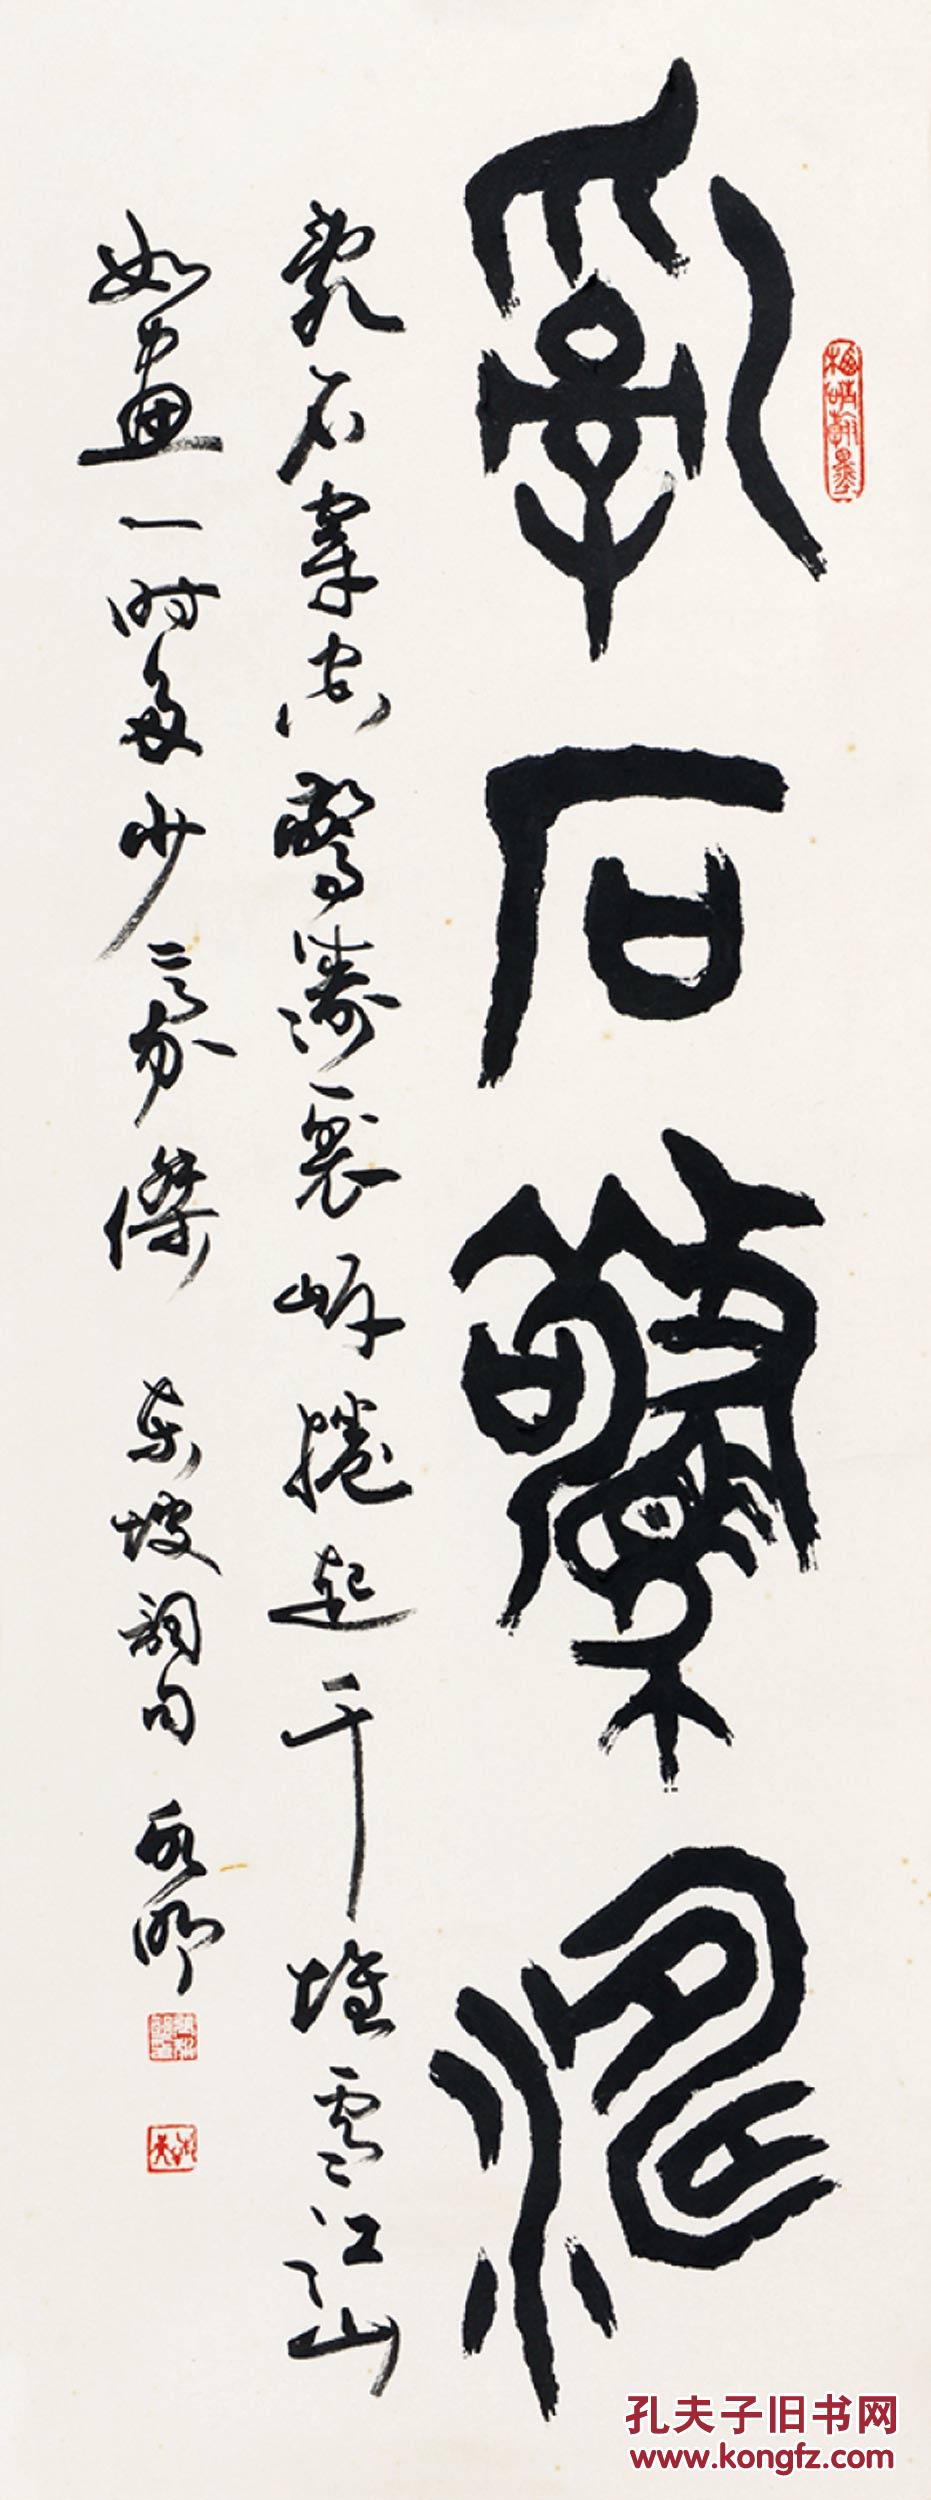 亂石驚濤
亂石穿空驚濤裂岸捲起千堆雪江山
如畫一時多少豪傑 東坡詞句
孔夫子旧书网
www.kongfz.com